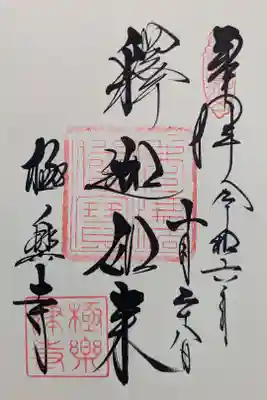 奉拝 令和六年
十月二十八日
釋迦如来
極楽寺
極樂
律寺